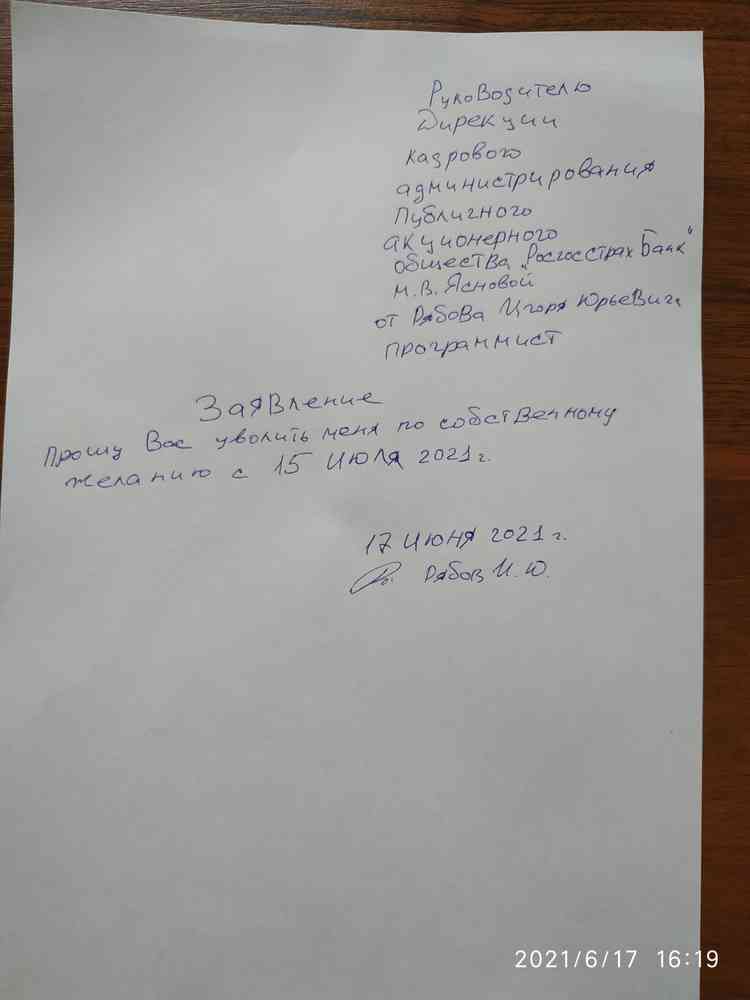 Руководителю
Дирекции
кадрового
администрирования
Публичного
акционерного
общества „Росгосстрах Банк"
М.В. Ясновой
от Рябова Игоря Юрьевича
программист
Заявление
Прошу Вас уволить меня по собственному
желанию с 15 июля 2021г.
17 июня 2021 г.
Рябов И.Ю.
2021/6/17 16:19